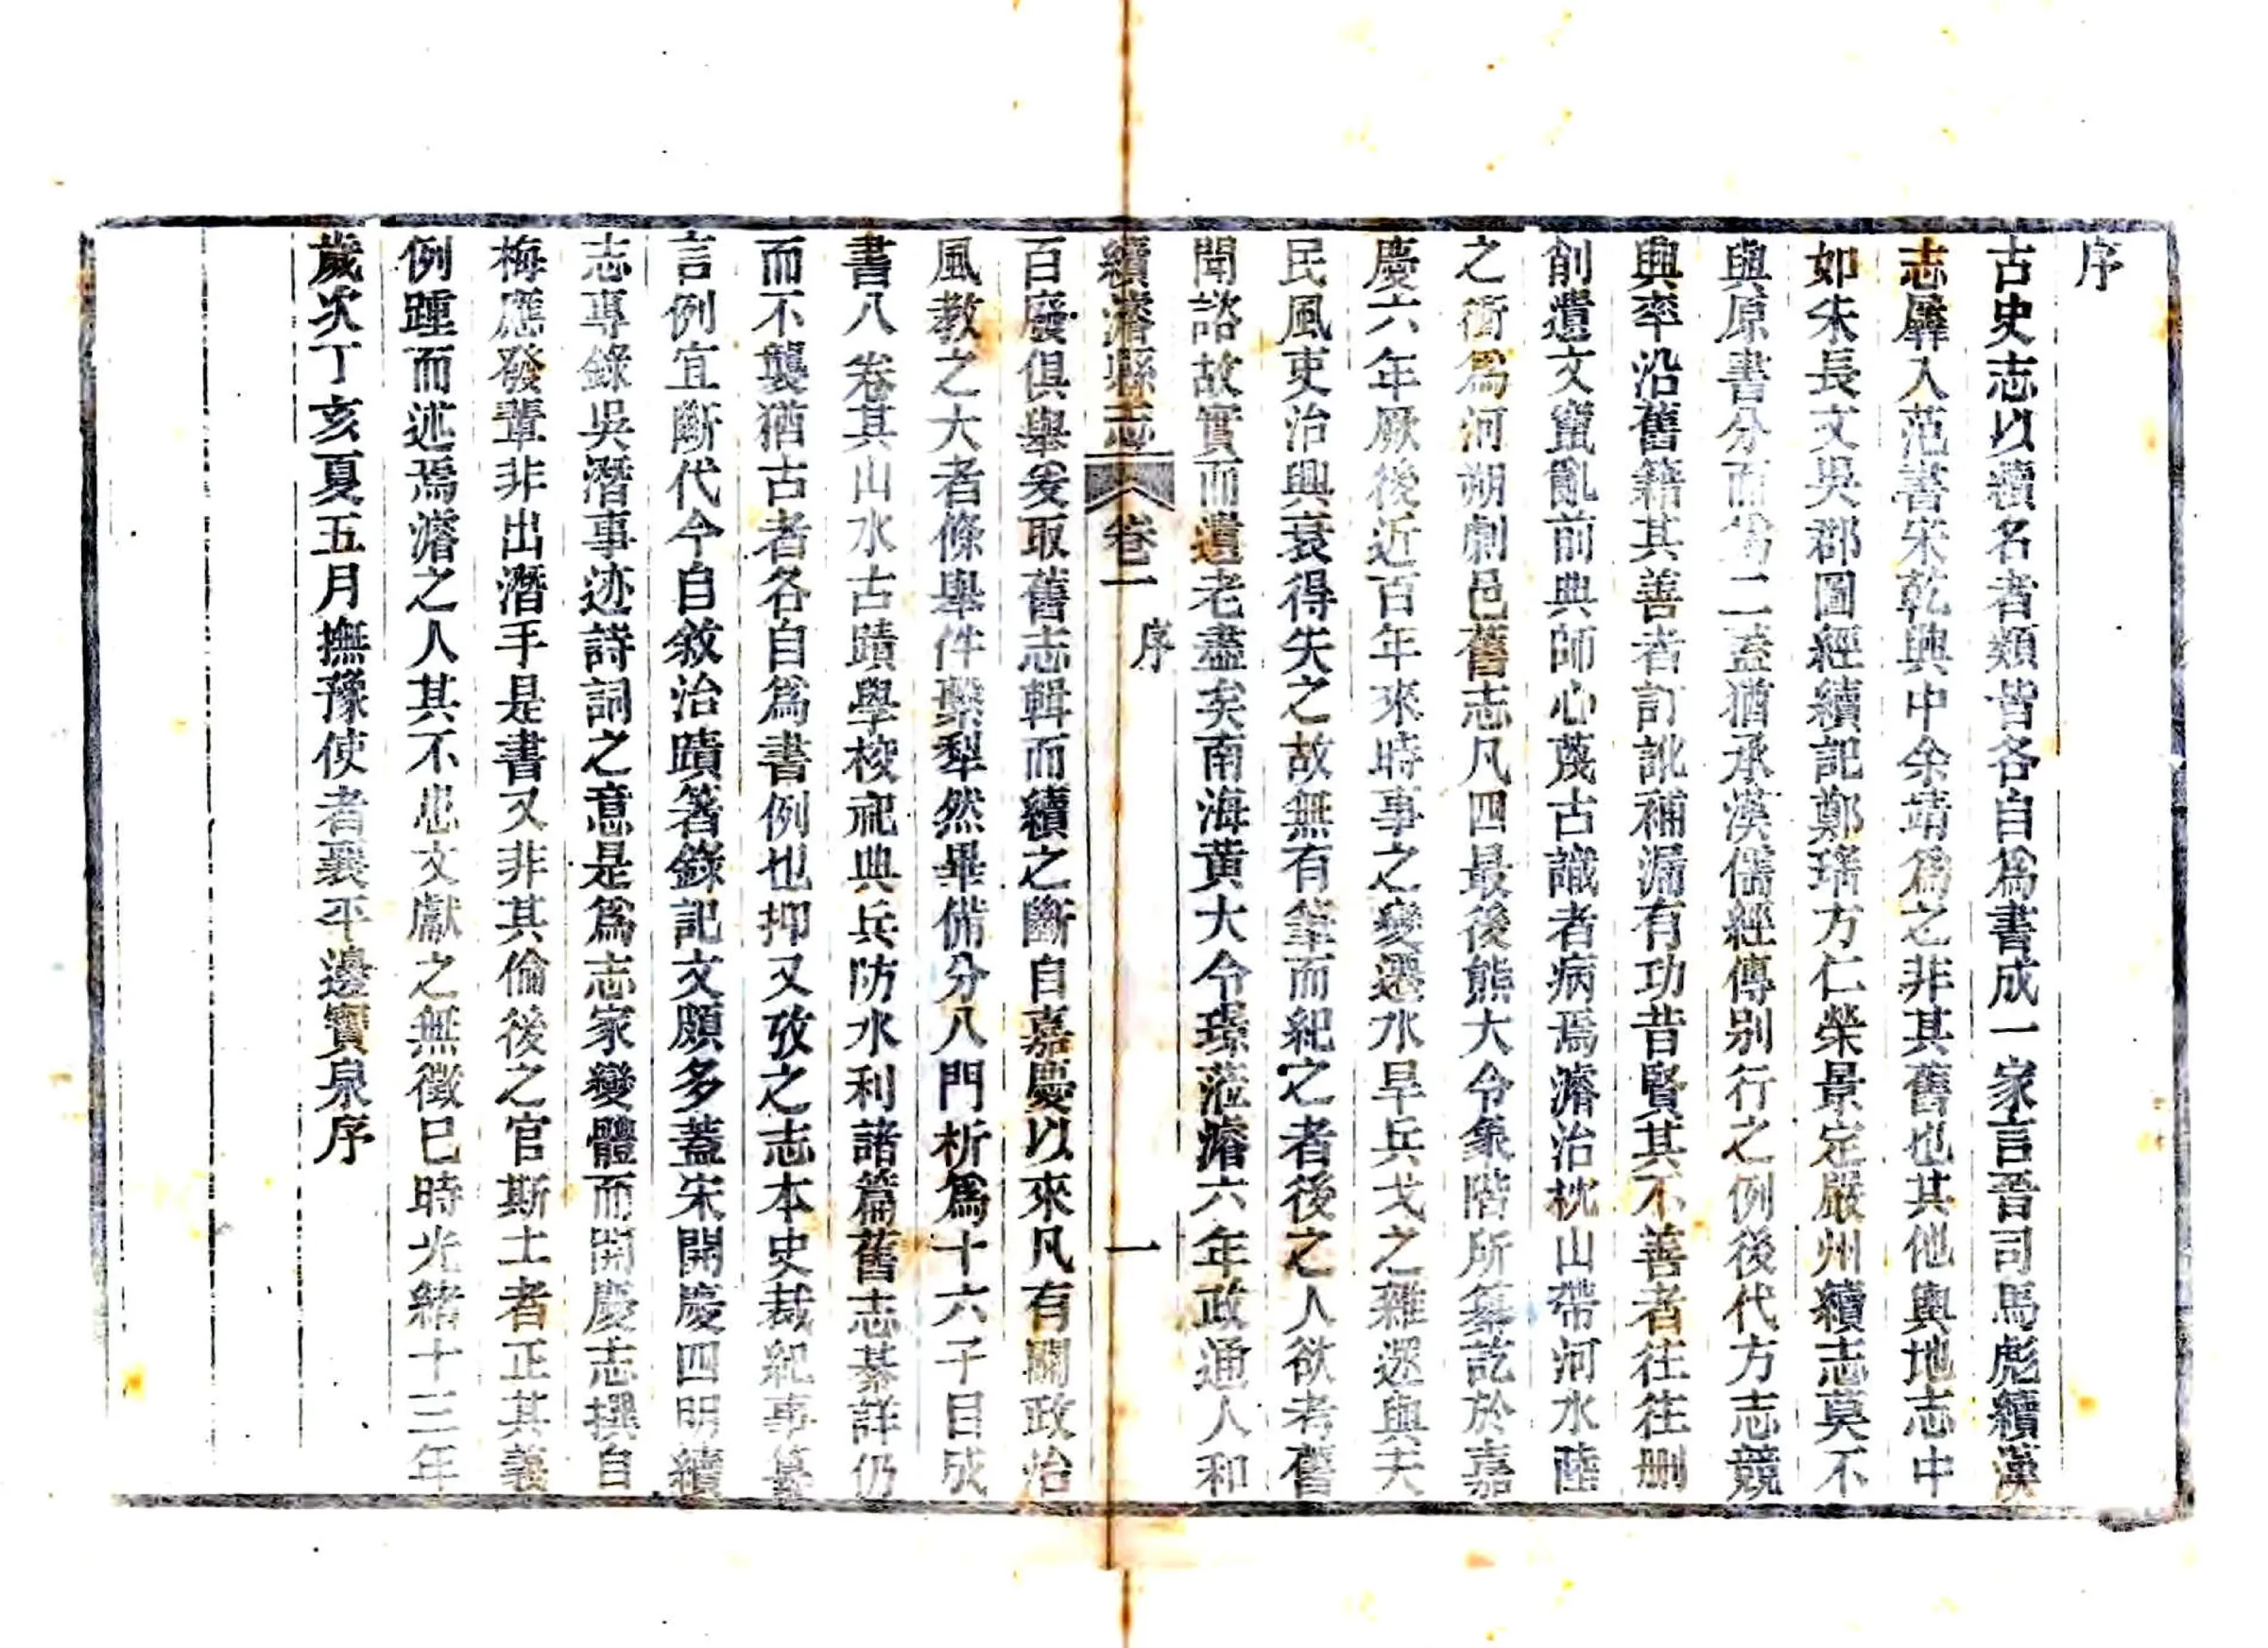 序
古史志以續名者類皆各自爲書成一家言晉司馬彪續漢
志羼入范書宋乾興中余靖爲之非其舊也其他輿地志中
如朱長文吳郡圖經續記鄭瑤方仁榮景定嚴州續志莫不
與原書分而爲二蓋猶承漢儒經傳別行之例後代方志競
興率沿舊籍其善者訂訛補漏有功昔賢其不善者往往刪
削遺文竄亂前典師心蔑古識者病焉濬治枕山帶河水陸
之衝爲河朔劇邑舊志凡四最後熊大令象階所纂訖於嘉
慶六年厥後近百年來時事之變遷水旱兵戈之雜遝與夫
民風吏治興衰得失之故無有筆而紀之者後之人欲考舊
聞諮故實而遺老盡矣南海黃大令璟蒞濬六年政通人和
續濬縣志 卷一 序 一
百廢俱舉爰取舊志輯而續之斷自嘉慶以來凡有關政治
風教之大者條舉件繫犁然畢備分八門析爲十六子目成
書八卷其山水古蹟學校祀典兵防水利諸篇舊志綦詳仍
而不襲猶古者各自爲書例也抑又攷之志本史裁紀事纂
言例宜斷代今自敘治蹟箸錄記文頗多蓋宋開慶四明續
志專錄吳潛事迹詩詞之意是爲志家變體而開慶志撰自
梅應發輩非出潛手是書又非其倫後之官斯土者正其義
例踵而述焉濬之人其不患文獻之無徵已時光緒十三年
歲次丁亥夏五月撫豫使者襄平邊寶泉序